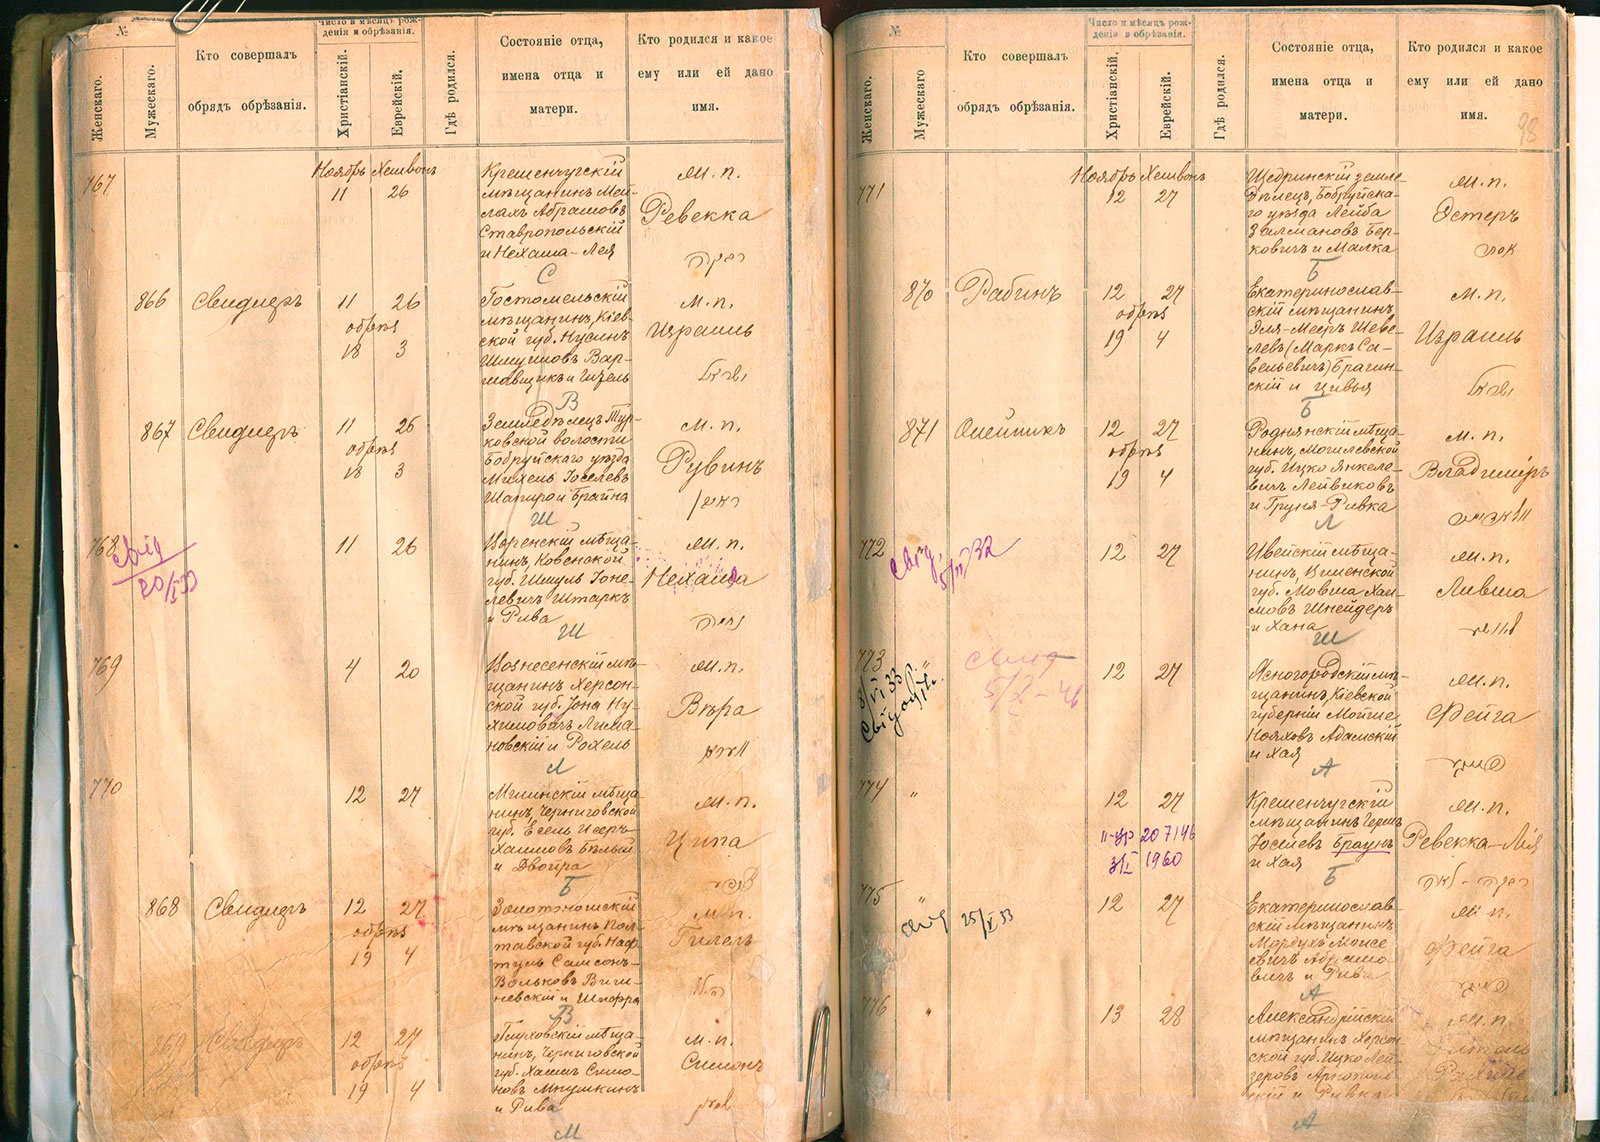 №
Женскаго.
Мужескаго.
Кто совершалъ
обрядъ обрѣзанія.
Число и мѣсяцъ рож-
денія и обрѣзанія.
Христіанскій.
Еврейскій.
Гдѣ родился.
Состояніе отца,
имена отца и
матери.
Кто родился и какое
ему или ей дано
имя.
767
Ноябрь Хешвонъ
11 26
Кременчугскій
мѣщанинъ Мей-
лахъ Абрамовъ
Ставропольскій
и Нехама-Лея
С
м. п.
Ревекка
866
Свидлеръ
11 26
обрѣз
18 3
Гостомельскій
мѣщанинъ, Кіев-
ской губ. Нусинъ
Шмулов Вар-
шавщикъ и Гизель
В
м. п.
Израиль
867
Свидлеръ
11 26
обрѣз
18 3
Земледѣлецъ Тур-
ковской волости
Бобруйскаго уѣзда
Михель Іоселевъ
Шапиро и Брайна
Ш
м. п.
Рувинъ
ראובן
768
Свід
20/I 33
11 26
нинъ, Ковенской
губ. Шмуль Іоне-
левичъ Штаркъ
и Рива
Ш
м. п.
Нехама
769
4 20
Вознесенскій мѣ-
щанинъ Херсон-
ской губ. Іона Ну-
химовичъ Лима-
новскій и Рохель
Л
м. п.
Вѣра
770
12 27
Мглинскій мѣща-
нинъ, Черниговской
губ. Есель Исеръ
Хаимовъ Бѣлый
и Двойра
Б
м. п.
Ципа
868
Свидлеръ
12 27
обрѣз
19 4
Золотоношскій
мѣщанинъ Пол-
тавской губ. Наф-
туль Самсонъ-
Вольковъ Виш-
невскій и Шифра
В
м. п.
Гилель
הלל
869
Свидлеръ
12 27
обрѣз
19 4
Глуховскій мѣща-
нинъ, Черниговской
губ. Хаимъ Симо-
новъ Мпушкинъ
и Рива
М
м. п.
Симонъ
№
Женскаго.
Мужескаго
Кто совершалъ
обрядъ обрѣзанія.
Число и мѣсяцъ рож-
денія и обрѣзанія.
Христіанскій.
Еврейскій.
Гдѣ родился.
Состояніе отца,
имена отца и
матери.
Кто родился и какое
ему или ей дано
имя.
98
771
Ноябрь Хешвонъ
12 27
Щедринскій земле-
дѣлецъ, Бобруйска-
го уѣзда Лейба
Залмановъ Бер-
ковичъ и Малка
Б
м. п.
Эстеръ
870
Рабинъ
12 27
обрѣз
19 4
Екатеринослав-
скій мѣщанинъ,
Эля-Меиръ Шеве-
левъ (Маркъ Са-
вельевичъ) Брагин-
скій и Цивья
Б
м. п.
Израиль
871
Олейникъ
12 27
обрѣз
19 4
Роднянскій мѣща-
нинъ, Могилевской
губ. Ицко Янкеле-
вичъ Лейвиковъ
и Груня-Ривка
Л
м. п.
Владиміръ
772
Свід.
5/II 32
12 27
Ивейскій мѣща-
нинъ, Виленской
губ. Мовша Хаи-
мовъ Шнейдеръ
и Хана
Ш
м. п.
Ливша
773 "
8/VI 33 р.
5/X-46
12 27
Ясногородскій мѣ-
щанинъ, Кіевской
губерніи Мойше
Нояховъ Адамскій
и Хая
А
м. п.
Фейга
774 "
12 27
II-ЦР 207146
3/I 1960
Кременчугскій
мѣщанинъ Чернъ
Іоселевъ Браунъ
и Хая
Б
м. п.
Ревекка-Лія
רבקה-לאה
775 "
25/V 33
12 27
Екатеринослав-
скій мѣщанинъ
Мордухъ Моисе-
евичъ Абрамо-
вичъ и Рива
А
м. п.
Фейга
776 "
13 28
Александрійскій
мѣщанинъ Херсон-
ской губ. Ицко Лей-
и Ривка
А
м. п.